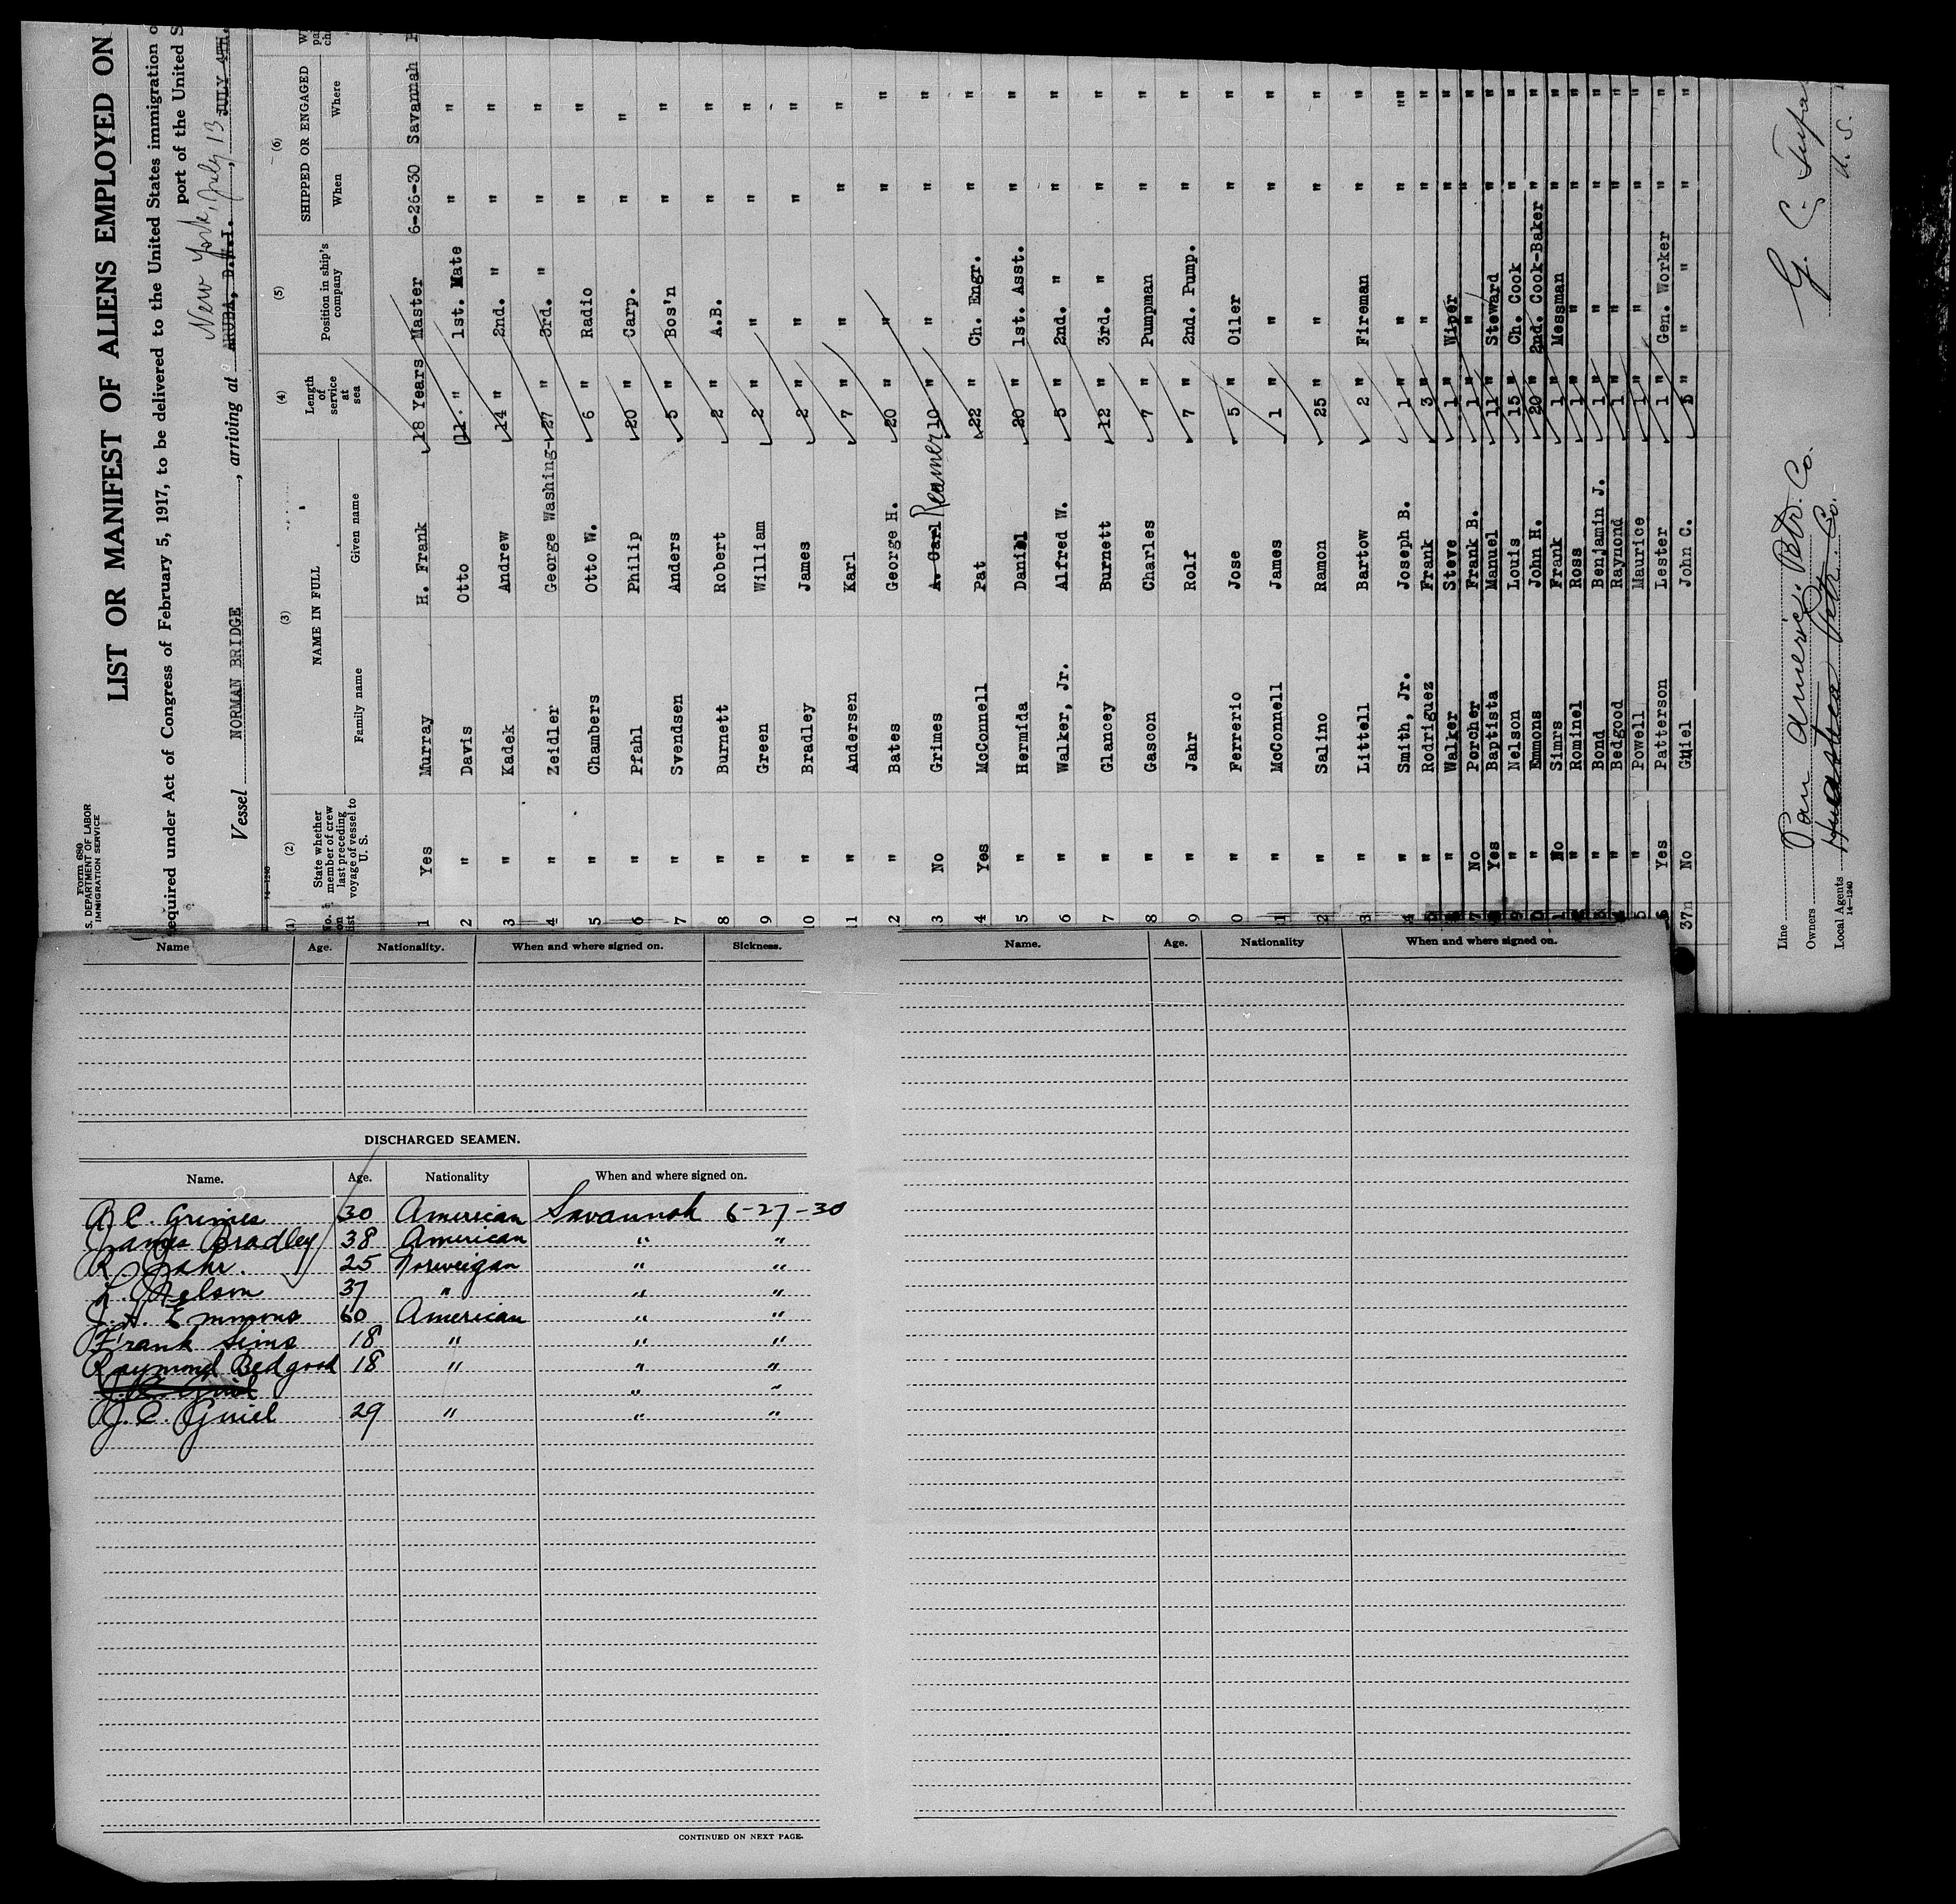 Form 680
S. DEPARTMENT OF LABOR
IMMIGRATION SERVICE
LIST OR MANIFEST OF ALIENS EMPLOYED ON
equired under Act of Congress of February 5, 1917, to be delivered to the United States immigration
port of the United S
Vessel NORMAN BRIDGE, arriving at ARUBA, D.W.I. New York, July 13 JULY 4TH.
14-1240
(1) (2) (3) (4) (5) (6)
No. on list State whether member of crew last preceding voyage of vessel to U. S. NAME IN FULL Length of service at sea Position in ship's company SHIPPED OR ENGAGED
Family name Given name When Where
1 Yes Murray H. Frank 18 Years Master 6-26-30 Savannah
2 " Davis Otto 11 " 1st. Mate " "
3 " Kadek Andrew 14 " 2nd. " " "
4 " Zeidler George Washing- 27 " 3rd. " " "
5 " Chambers Otto W. 6 " Radio " "
6 " Pfahl Philip 20 " Carp. " "
7 " Svendsen Anders 5 " Bos'n " "
8 " Burnett Robert 2 " A.B. " "
9 " Green William 2 " " " "
10 " Bradley James 2 " " " "
11 " Andersen Karl 7 " " " "
2 " Bates George H. 20 " " " "
3 No Grimes A. Carl 10 " " " "
4 Yes McConnell Pat 22 " Ch. Engr. " "
5 " Hermida Daniel 20 " 1st. Asst. " "
6 " Walker, Jr. Alfred W. 5 " 2nd. " " "
7 " Glancey Burnett 12 " 3rd. " " "
8 " Gascon Charles 7 " Pumpman " "
9 " Jahr Rolf 7 " 2nd. Pump. " "
0 " Ferrerio Jose 5 " Oiler " "
1 " McConnell James 1 " " " "
2 " Salino Ramon 25 " " " "
3 " Littell Bartow 2 " Fireman " "
4 " Smith, Jr. Joseph B. 1 " " " "
" Rodriguez Frank 3 " " " "
" Walker Steve 1 " Wiper " "
7 No Porcher Frank B. 1 " " " "
Yes Baptista Manuel 11 " Steward " "
9 " Nelson Louis 15 " Ch. Cook " "
0 " Emmons John H. 20 " 2nd. Cook-Baker " "
1 No Simres Frank 1 " Messman " "
" Rominel Ross 1 " " " "
" Bond Benjamin J. 1 " " " "
" Bedgood Raymond 1 " " " "
5 " Powell Maurice 1 " " " "
6 Yes Patterson Lester 1 " Gen. Worker " "
37 No Guiel John C. 5 " " " "
Line
Owners Pan American Ptr. Co.
Local Agents Huasteca Petr. Co.
14-1240
G. C.
U. S.
Name Age. Nationality. When and where signed on. Sickness.
Name. Age. Nationality When and where signed on.
DISCHARGED SEAMEN.
Name. Age. Nationality When and where signed on.
A C. Grimes 30 American Savannah 6-27-30
James Bradley 38 American " "
R. Jahr. 25 Norweigan " "
L. Nelson 37 " " "
J. H. Emmons 60 American " "
Frank Sims 18 " " "
Raymond Bedgood 18 " " "
J. C. Guiel " "
J. C. Guiel 29 " " "
CONTINUED ON NEXT PAGE.